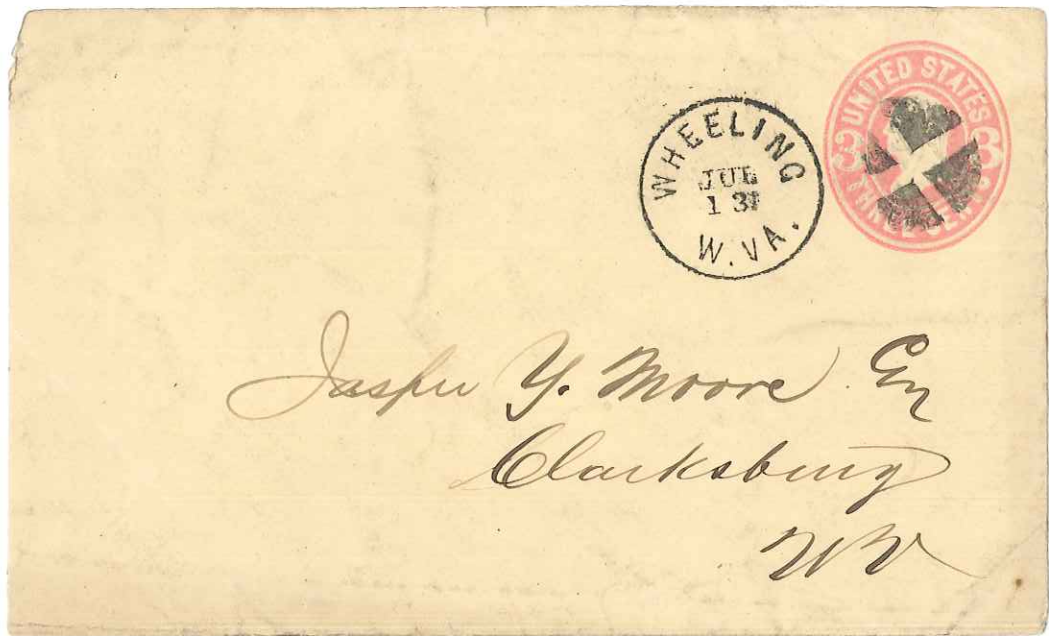 UNITED STATES
3 3
THREE CENTS
WHEELING
JUL
13
W.VA.
Jasper Y. Moore Esq
Clarksburg
W V